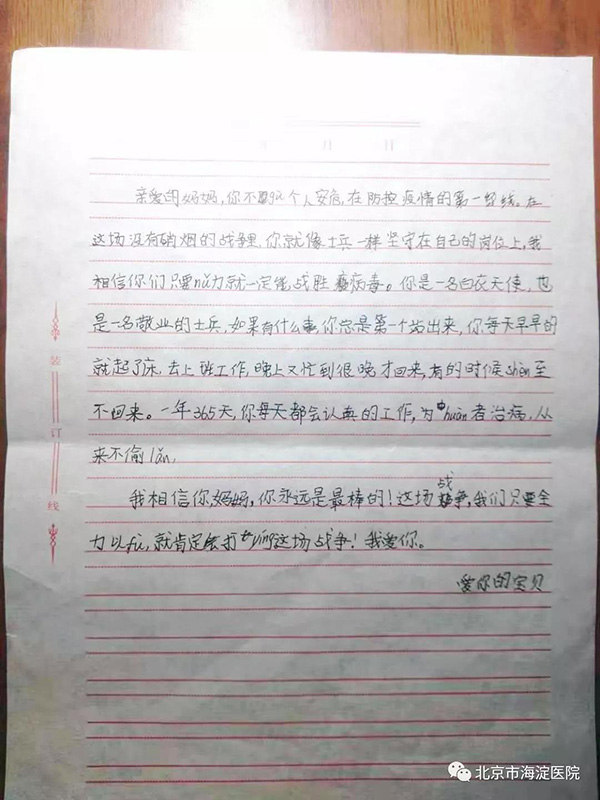 月 月
亲爱的妈妈,你不顾gù个人安危,在防控疫情的第一线。在
这场没有硝烟的战争里,你就像士兵一样坚守在自己的岗位上,我
相信你们只要nǔ力就一定能战胜病毒。你是一名白衣天使,也
是一名敬业的士兵,如果有什么事,你总是第一个站出来,你每天早早的
就起了床,去上班工作,晚上又忙到很晚才回来,有的时候shèn至
不回来。一年365天,你每天都会认真的工作,为huàn者治病,从
来不偷lǎn,
我相信你,妈妈,你永远是最棒的!这场战争,我们只要全
力以fù,就肯定会打yíng这场战争!我爱你。
爱你的宝贝
装
订
线
北京市海淀医院